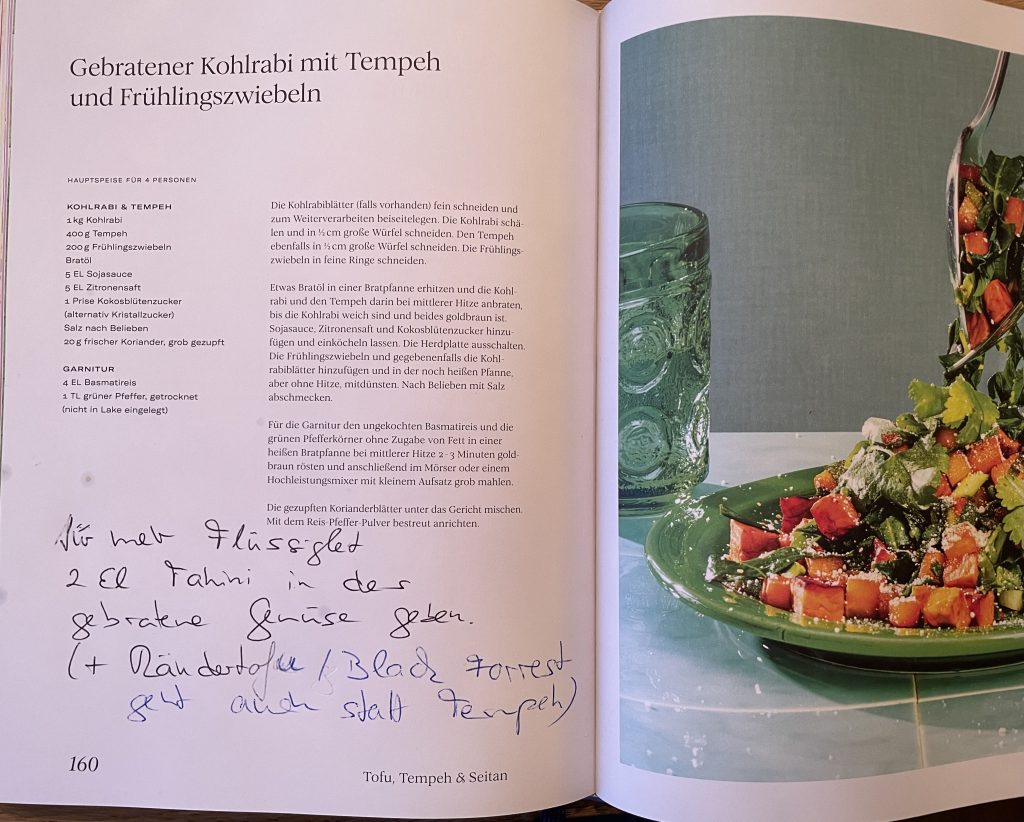 Gebratener Kohlrabi mit Tempeh
und Frühlingszwiebeln
HAUPTSPEISE FÜR 4 PERSONEN
KOHLRABI & TEMPEH
1 kg Kohlrabi
400 g Tempeh
200 g Frühlingszwiebeln
Bratöl
5 EL Sojasauce
5 EL Zitronensaft
1 Prise Kokosblütenzucker
(alternativ Kristallzucker)
Salz nach Belieben
20 g frischer Koriander, grob gezupft
GARNITUR
4 EL Basmatireis
1 TL grüner Pfeffer, getrocknet
(nicht in Lake eingelegt)
Die Kohlrabiblätter (falls vorhanden) fein schneiden und
zum Weiterverarbeiten beiseitelegen. Die Kohlrabi schä-
len und in ½ cm große Würfel schneiden. Den Tempeh
ebenfalls in ½ cm große Würfel schneiden. Die Frühlings-
zwiebeln in feine Ringe schneiden.
Etwas Bratöl in einer Bratpfanne erhitzen und die Kohl-
rabi und den Tempeh darin bei mittlerer Hitze anbraten,
bis die Kohlrabi weich sind und beides goldbraun ist.
Sojasauce, Zitronensaft und Kokosblütenzucker hinzu-
fügen und einköcheln lassen. Die Herdplatte ausschalten.
Die Frühlingszwiebeln und gegebenenfalls die Kohl-
rabiblätter hinzufügen und in der noch heißen Pfanne,
aber ohne Hitze, mitdünsten. Nach Belieben mit Salz
abschmecken.
Für die Garnitur den ungekochten Basmatireis und die
grünen Pfefferkörner ohne Zugabe von Fett in einer
heißen Bratpfanne bei mittlerer Hitze 2–3 Minuten gold-
braun rösten und anschließend im Mörser oder einem
Hochleistungsmixer mit kleinem Aufsatz grob mahlen.
Die gezupften Korianderblätter unter das Gericht mischen.
Mit dem Reis-Pfeffer-Pulver bestreut anrichten.
Für mehr Flüssigkeit
2 El Tahini in das
gebratene Gemüse geben.
(+ Rändertofu / Black Forrest
geht auch statt Tempeh)
160
Tofu, Tempeh & Seitan